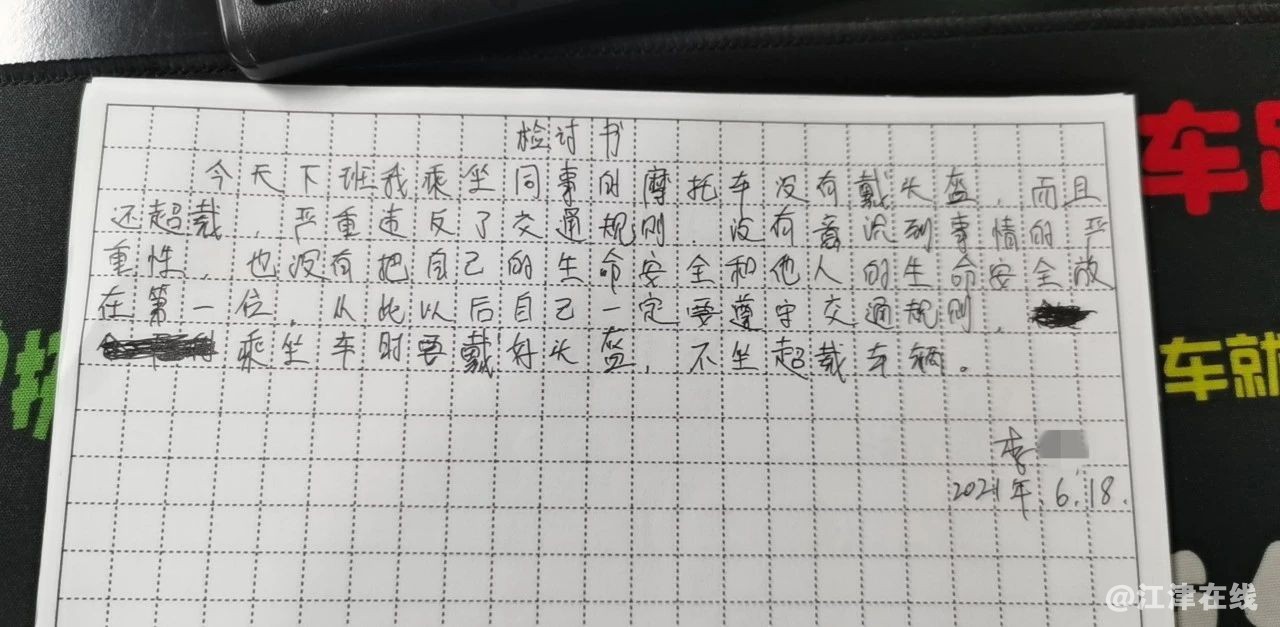 检讨书
今天下班我乘坐同事的摩托车没有戴头盔，而且
还超载，严重违反了交通规则，没有意识到事情的严
重性，也没有把自己的生命安全和他人的生命安全放
在第一位，从此以后自己一定要遵守交通规则，
乘坐车时要戴好头盔，不坐超载车辆。
李
2021年.6.18.
车
车就
@江津在线